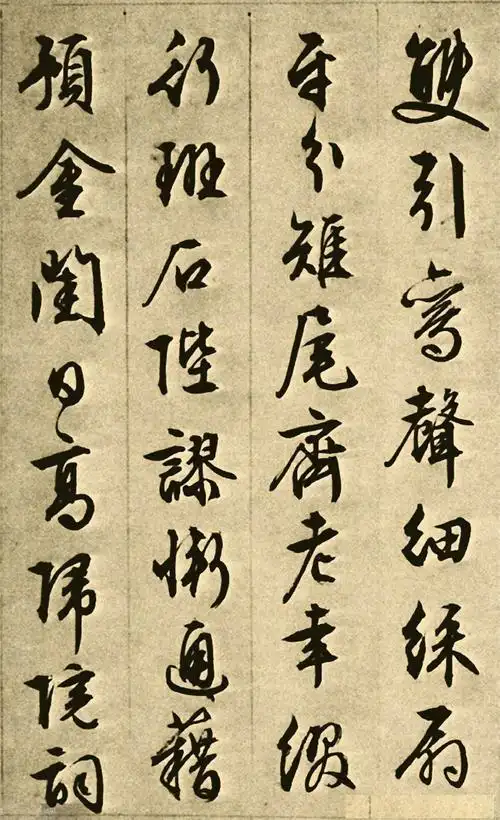 雙引鸞聲細綵扇
平分雉尾齊老幸綴
行班石陛謬慚通藉
預金閨日高歸院詞